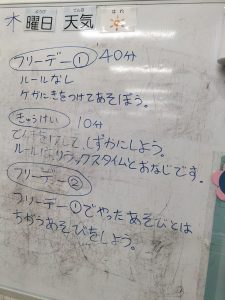 木 ようび 曜日 てんき 天気 はれ
フリーデー① 40分
ルールなし
ケガにきをつけてあそぼう。
きゅうけい 10分
でんきをけして、しずかにしよう。
ルールはリラックスタイムとおなじです。
フリーデー②
フリーデー①でやったあそびとは
ちがうあそびをしよう。